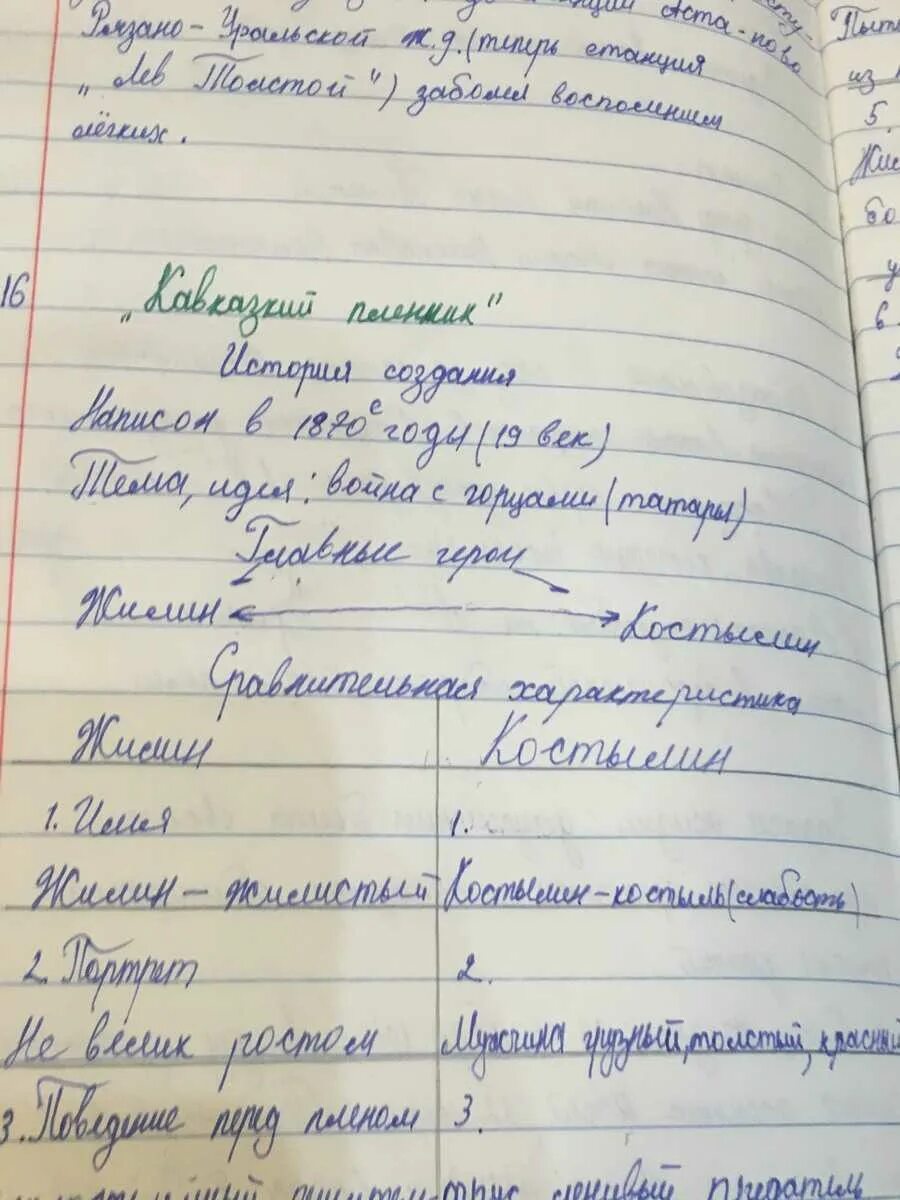 станции Аста-пово
Рязано-Уральской ж.д. (теперь станция
"Лев Толстой") заболел восполением
лёгких.
Пыт
из
5.
Жи
бо
у
6.
16
"Кавказкий пленник"
История создания
Написан в 1870е годы (19 век)
Тема, идея: война с горцами (татары)
Главные герои
Жилин Костылин
Сравнительная характеристика
Жилин Костылин
1. Имя 1.
Жилин - жилистый Костылин - костыль (слабость)
2. Портрет 2.
Не велик ростом Мужчина грузный, толстый, красный
3. Поведение перед пленом 3.
трус ленивый предатель